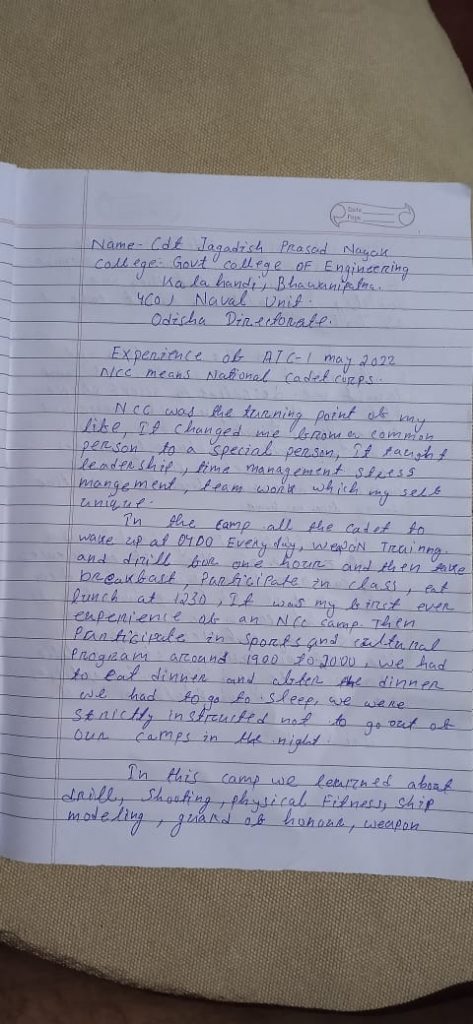 Date
Page
Name- Cdt Jagadish Prasad Nayak
College- Govt college OF Engineering
Kalahandi, Bhawanipatna.
4(O) Naval Unit.
Odisha Directorate.
Experience of ATC-1 may 2022
NCC means National cadet corps.
NCC was the turning point of my
life, It changed me from a common
person to a special person, It taught
leadership, time management stress
mangement, team work which my self
unique.
In the camp all the cadet to
wake up at 0400 Every day, Weapon Training.
and drill for one hour and then take
breakfast, Participate in class, eat
lunch at 1230, It was my first ever
experience of an NCC camp. Then
Participate in sports and cultural
program around 1900 to 2000, we had
to eat dinner and after the dinner
we had to go to sleep, we were
strictly instructed not to go out of
our camps in the night.
In this camp we learned about
drill, Shooting, physical Fitness, ship
modeling, guard of honour, weapon